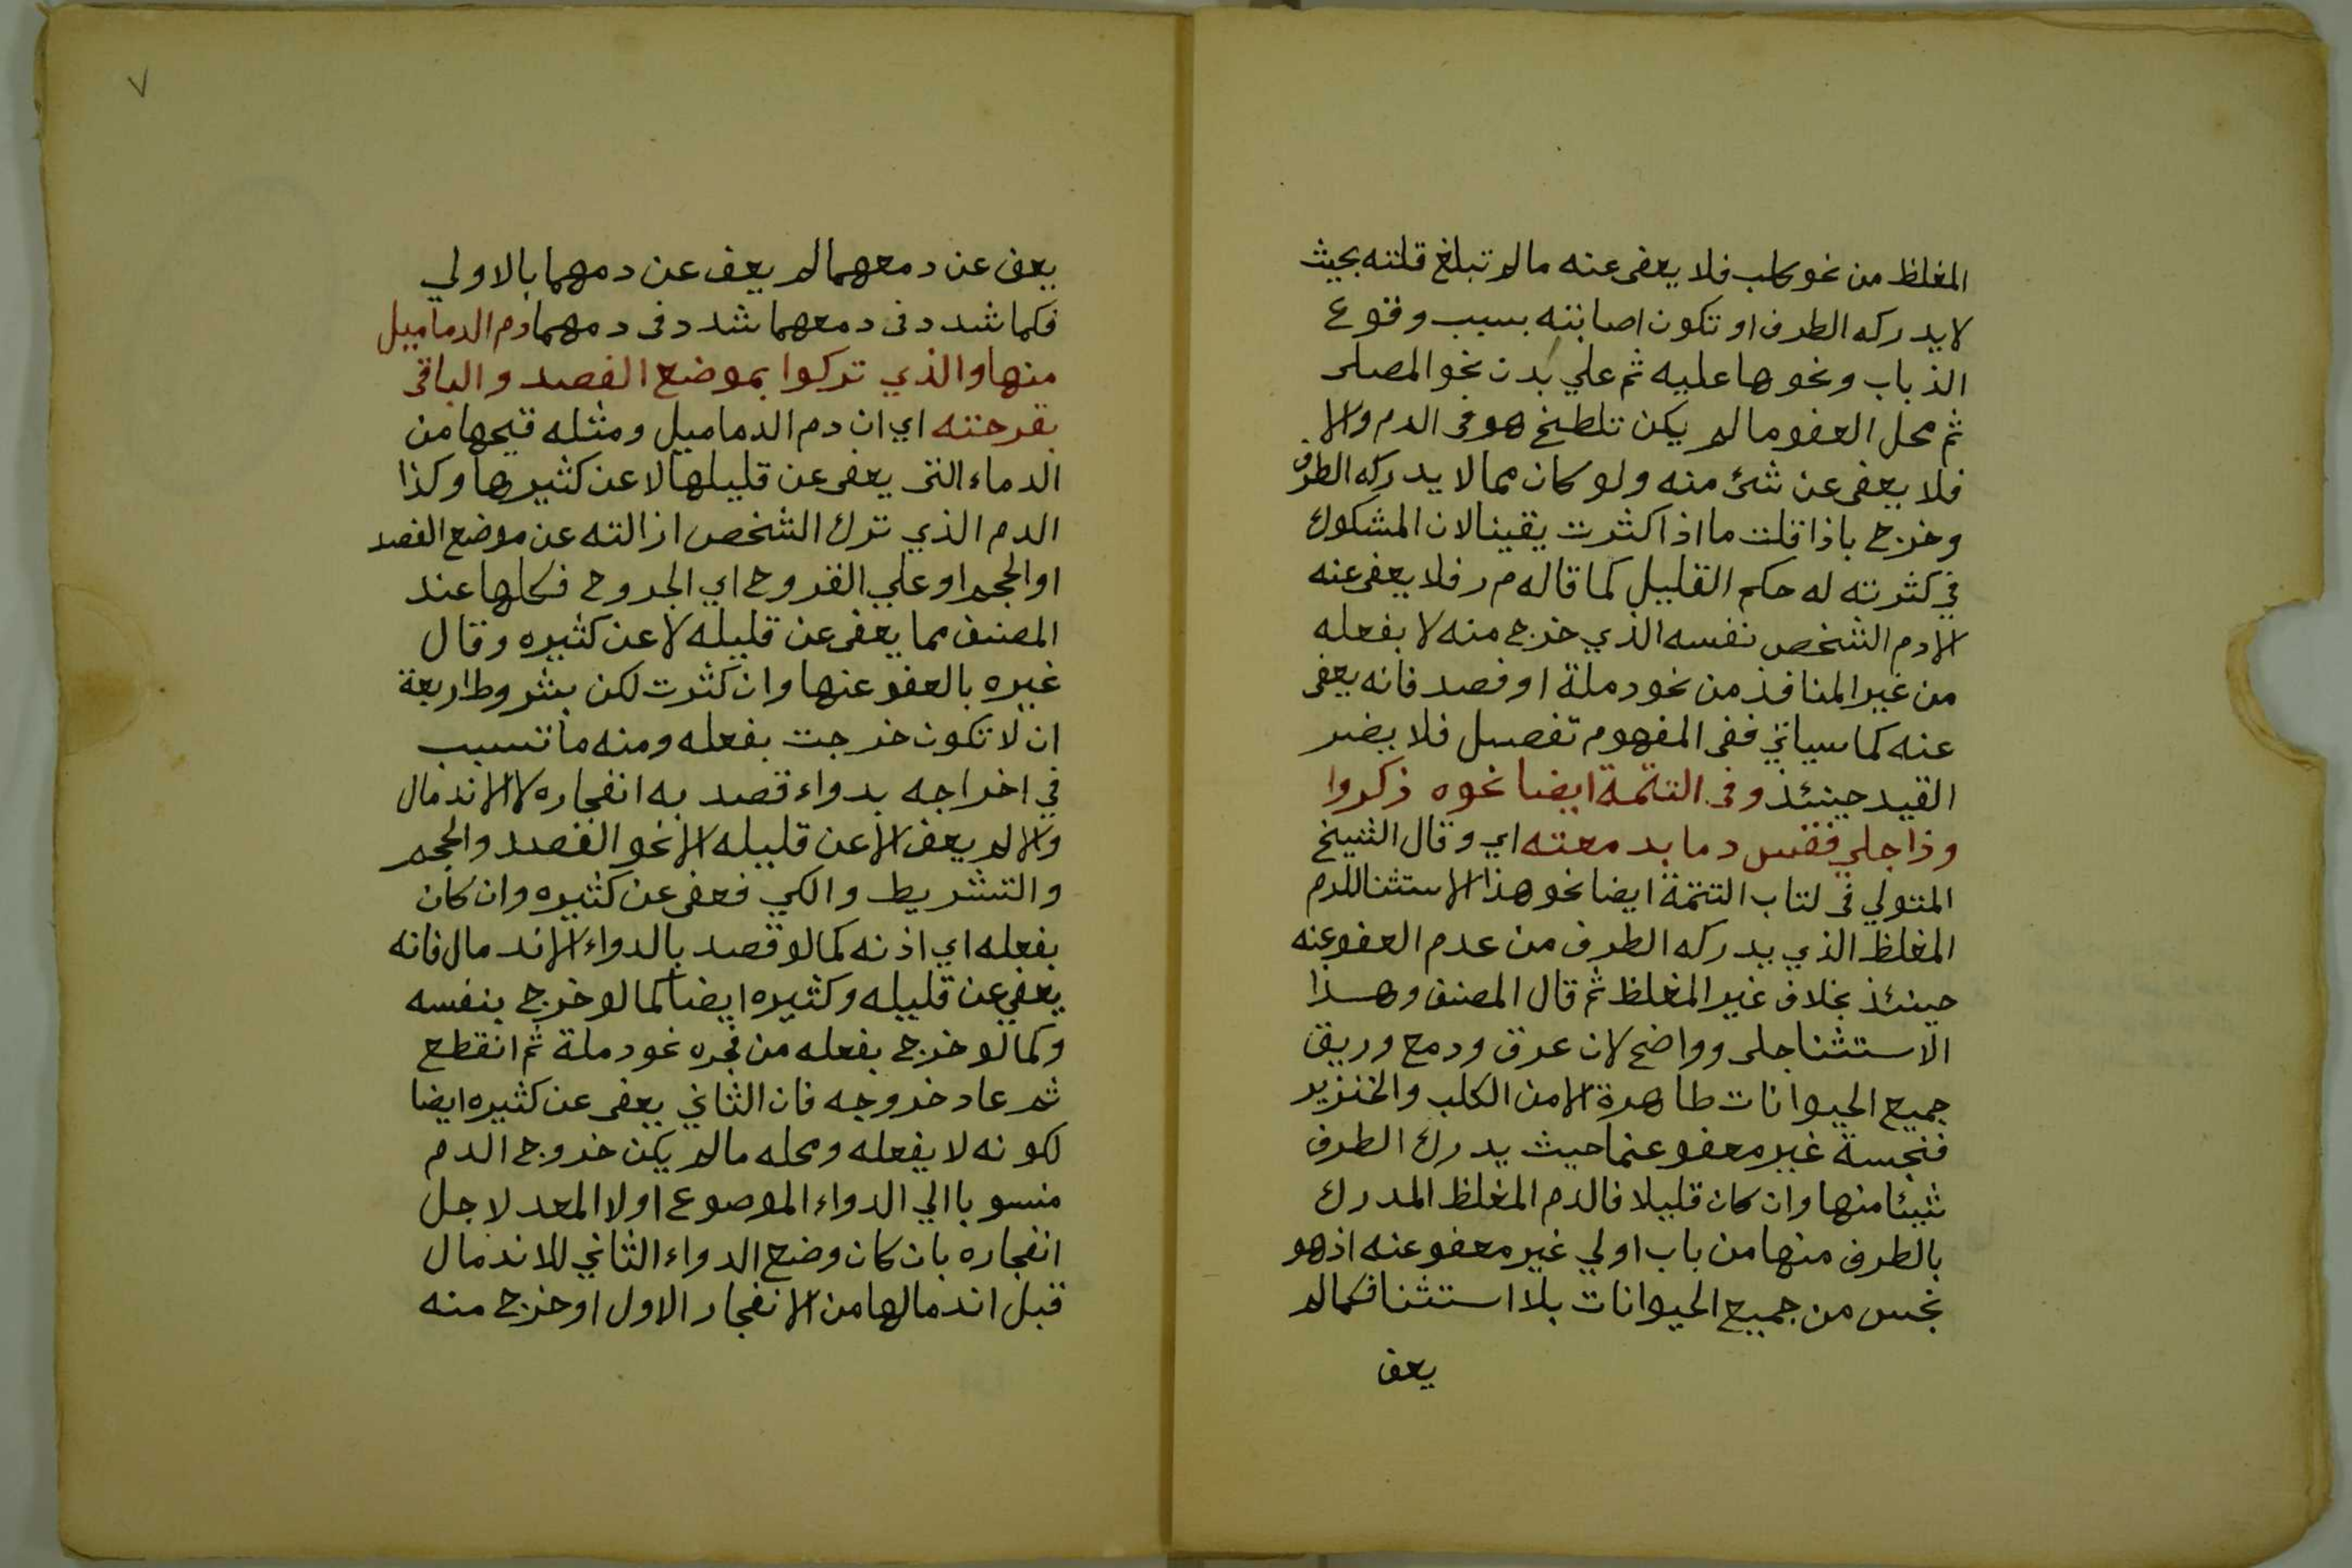 المغلظ من نحو كلب فلا يعفى عنه ما لم تبلغ قلته بحيث
لا يدركه الطرف او تكون اصابته بسبب وقوع
الذباب ونحوها عليه ثم علي بدن نحو المصلى
ثم محل العفو ما لم يكن تلطخ هو فى الدم والا
فلا يعفى عن شئ منه ولو كان مما لا يدركه الطرف
وخرج باذا قلت ما اذا كثرت يقينا لان المشكوك
في كثرته له حكم القليل كما قاله م ر فلا يعفى عنه
الا دم الشخص نفسه الذي خرج منه لا بفعله
من غير المنافذ من نحو دملة او فصد فانه يعفى
عنه كما سياتي ففى المفهوم تفصيل فلا يضر
القيد حينئذ وفى التتمة ايضا نحوه ذكروا
وذا جلي فقس دما بدمعته اي وقال الشيخ
المتولي فى كتاب التتمة ايضا نحو هذا الاستثنا للدم
المغلظ الذي يدركه الطرف من عدم العفو عنه
حينئذ بخلاف غير المغلظ ثم قال المصنف وهذا
الاستثنا جلى وواضح لان عرق ودمع وريق
جميع الحيوانات طاهرة الا من الكلب والخنزير
فنجسة غير معفو عنها حيث يدرك الطرف
شيئا منها وان كان قليلا فالدم المغلظ المدرك
بالطرف منها من باب اولي غير معفو عنه اذ هو
نجس من جميع الحيوانات بلا استثنا فكما لم
يعف
٧
يعف عن دمعهما لم يعف عن دمهما بالاولي
فكما شدد فى دمعهما شدد فى دمهما دم الدماميل
منها والذي تركوا بموضع الفصد والباقى
بقرحته اي ان دم الدماميل ومثله قيحها من
الدماء التى يعفى عن قليلها لا عن كثيرها وكذا
الدم الذي ترك الشخص ازالته عن موضع الفصد
او الحجم او علي القروح اي الجروح فكلها عند
المصنف مما يعفى عن قليله لا عن كثيره وقال
غيره بالعفو عنها وان كثرت لكن بشروط اربعة
ان لا تكون خرجت بفعله ومنه ما تسبب
في اخراجه بدواء قصد به انفجاره لا الاندمال
والا لم يعف الا عن قليله الا نحو الفصد والحجم
والتشريط والكي فعفى عن كثيره وان كان
بفعله اي اذنه كما لو قصد بالدواء الاندمال فانه
يعفي عن قليله وكثيره ايضا كما لو خرج بنفسه
وكما لو خرج بفعله من فجره نحو دملة ثم انقطع
ثم عاد خروجه فان الثاني يعفى عن كثيره ايضا
لكونه لا بفعله ومحله ما لم يكن خروج الدم
منسوبا الي الدواء الموصوع اولا المعد لاجل
انفجاره بان كان وضع الدواء الثاني للاندمال
قبل اندمالها من الانفجار الاول او خرج منه